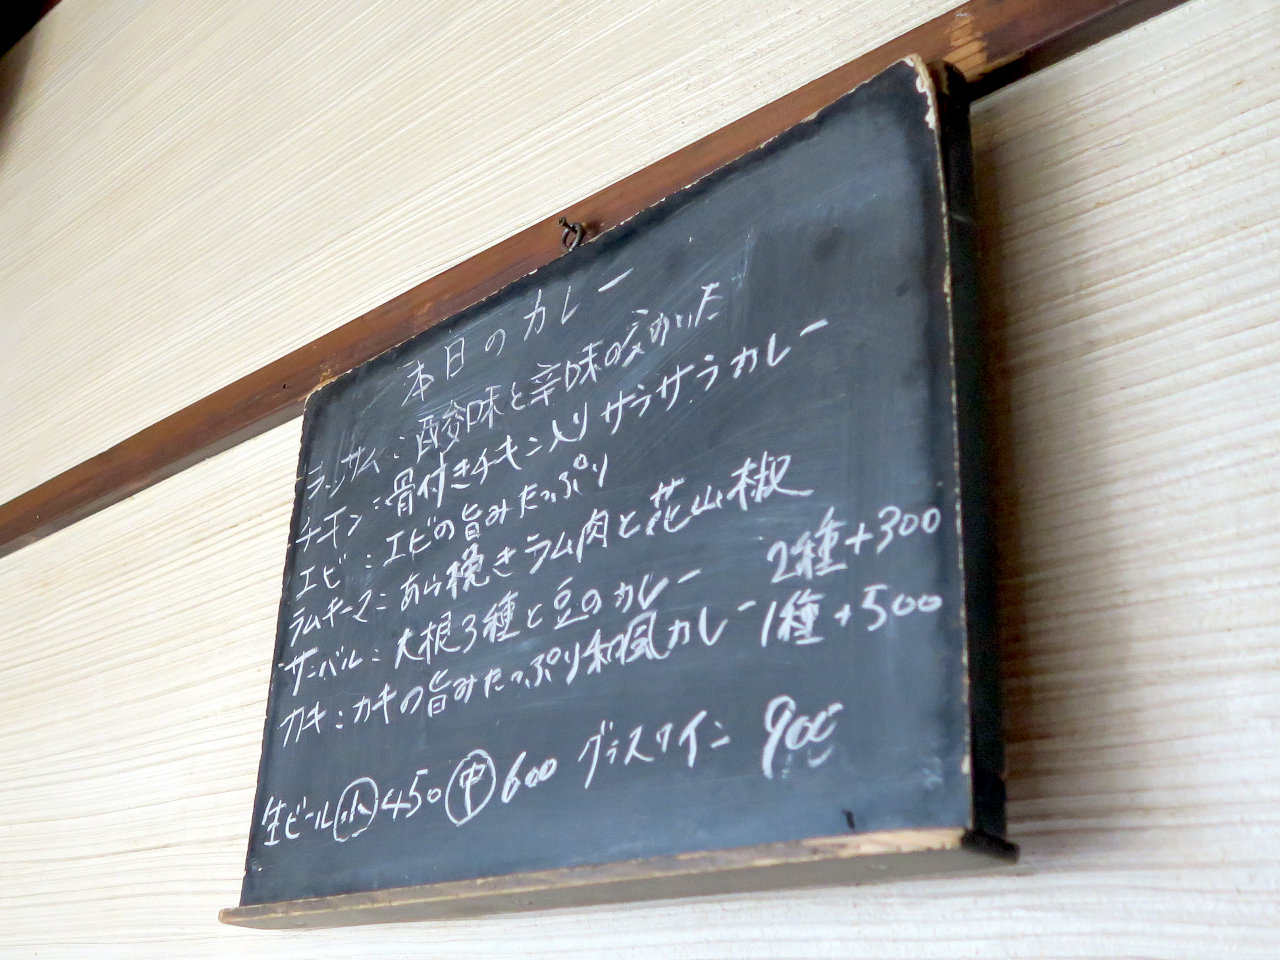 本日のカレー
ラッサム:酸味と辛味の効いた
チキン:骨付きチキン入りサラサラカレー
エビ:エビの旨みたっぷり
ラムキーマ:あら挽きラム肉と花山椒
サンバル:大根3種と豆のカレー 2種+300
カキ:カキの旨みたっぷり和風カレー 1種+500
生ビール㊥小 450 ㊥600 グラスワイン 900